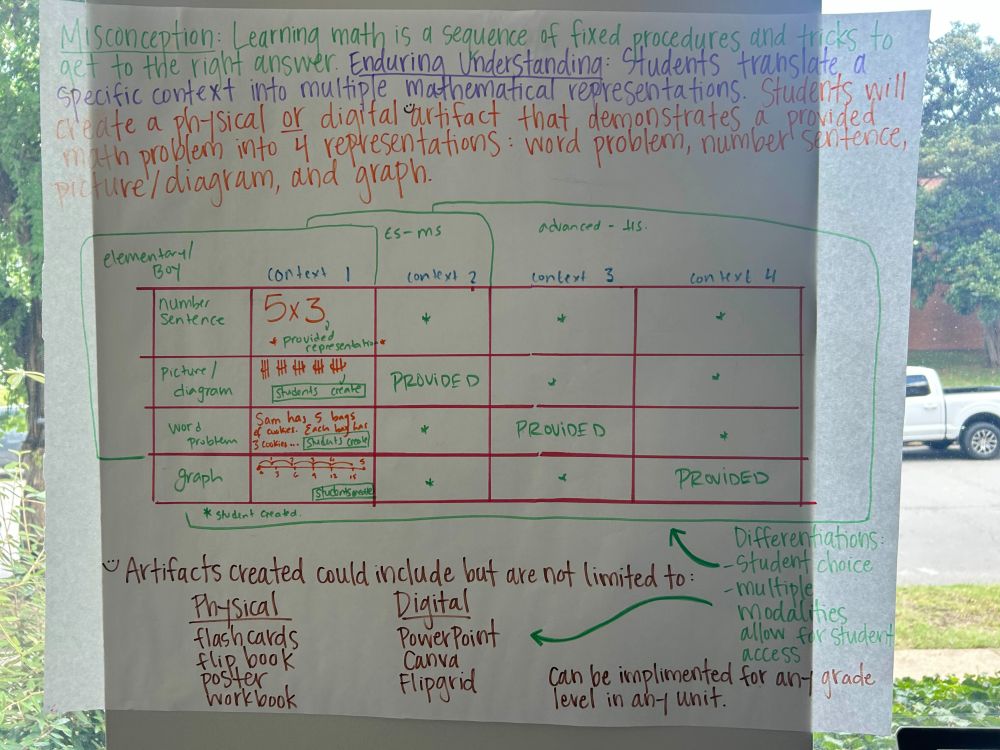 Misconception: Learning math is a sequence of fixed procedures and tricks to
get to the right answer. Enduring Understanding: Students translate a
specific context into multiple mathematical representations. Students will
create a physical or digital artifact that demonstrates a provided
math problem into 4 representations: word problem, number sentence,
picture/diagram, and graph.
elementary/
BOY
ES-MS
advanced - HS.
context 1
context 2
context 3
context 4
number
sentence
5x3
* provided
representation*
*
*
*
picture/
diagram
students create
PROVIDED
*
*
word
problem
Sam has 5 bags
of cookies. Each bag has
3 cookies... students create
*
PROVIDED
*
graph
0 3 6 9 12 15
students create
*
*
PROVIDED
* student created.
Differentiations:
- Student choice
- multiple
modalities
allow for student
access
Artifacts created could include but are not limited to:
Physical
flashcards
flip book
poster
workbook
Digital
PowerPoint
Canva
Flipgrid
Can be implimented for any grade
level in any unit.